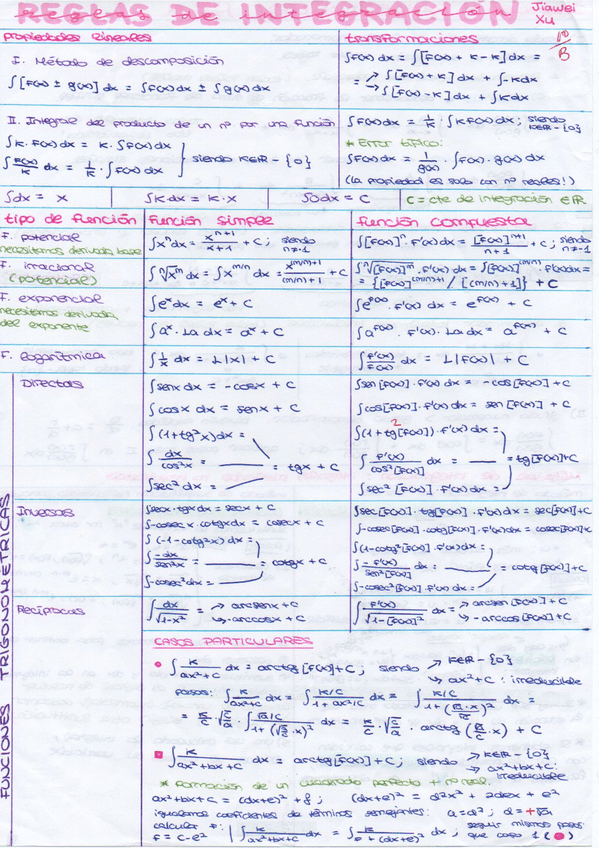 REGLAS DE INTEGRACIÓN
Jiawei Xu
10
B
propiedades lineales
transformaciones
I. Método de descomposición
∫[f(x) ± g(x)] dx = ∫f(x) dx ± ∫g(x) dx
∫f(x) dx = ∫[f(x) + k - k] dx =
= → ∫[f(x) + k] dx + ∫-k dx
↘ ∫[f(x) - k] dx + ∫k dx
II. Integral del producto de un nº por una función
∫k · f(x) dx = k · ∫f(x) dx
∫f(x)/k dx = 1/k · ∫f(x) dx } siendo k∈ℝ - {0}
∫f(x) dx = 1/k · ∫k f(x) dx; siendo k∈ℝ - {0}
* Error típico:
∫f(x) dx = 1/g(x) · ∫f(x) · g(x) dx
(La propiedad es solo con nº reales!)
∫dx = x
∫k dx = k · x
∫0 dx = C
C = cte de integración ∈ ℝ
tipo de función
función simple
función compuesta
F. potencial
necesitamos derivada base
∫xⁿ dx = xⁿ⁺¹/x+1 + C; siendo n≠-1
∫[f(x)]ⁿ · f'(x) dx = [f(x)]ⁿ⁺¹/n+1 + C; siendo n≠-1
F. irracional
(potencial)
∫ⁿ√xᵐ dx = ∫x^(m/n) dx = x^((m/n)+1)/(m/n)+1 + C
∫ⁿ√[f(x)]ᵐ · f'(x) dx = ∫[f(x)]^(m/n) · f'(x) dx =
= {[f(x)]^((m/n)+1) / [(m/n)+1]} + C
F. exponencial
necesitamos derivada
del exponente
∫eˣ dx = eˣ + C
∫e^f(x) · f'(x) dx = e^f(x) + C
∫aˣ · La dx = aˣ + C
∫a^f(x) · f'(x) · La dx = a^f(x) + C
F. logarítmica
∫1/x dx = L|x| + C
∫f'(x)/f(x) dx = L|f(x)| + C
FUNCIONES TRIGONOMÉTRICAS
Directas
∫senx dx = -cosx + C
∫cosx dx = senx + C
∫(1+tg²x) dx =
∫dx/cos²x = = tgx + C
∫sec² dx =
∫sen[f(x)] · f'(x) dx = -cos[f(x)] + C
∫cos[f(x)] · f'(x) dx = sen[f(x)] + C
∫(1+tg²[f(x)]) · f'(x) dx =
∫f'(x)/cos²[f(x)] dx = = tg[f(x)]+C
∫sec²[f(x)] · f'(x) dx =
Inversas
∫secx · tgx dx = secx + C
∫-cosecx · cotgx dx = cosecx + C
∫(-1-cotg²x) dx =
∫-dx/sen²x = = cotgx + C
∫-cosec² dx =
∫sec[f(x)] · tg[f(x)] · f'(x) dx = sec[f(x)]+C
∫-cosec[f(x)] · cotg[f(x)] · f'(x) dx = cosec[f(x)]+C
∫(1-cotg²[f(x)] · f'(x) dx =
∫-f'(x)/sen²[f(x)] dx = = cotg[f(x)]+C
∫-cosec²[f(x)] · f'(x) dx =
Recíprocas
∫dx/√1-x² = → arcsenx + C
↘ -arccosx + C
∫f'(x)/√1-[f(x)]² dx = → arcsen[f(x)] + C
↘ -arccos[f(x)] + C
CASOS PARTICULARES
∫k/ax²+C dx = arctg[f(x)]+C; siendo ↗ k∈ℝ - {0}
↘ ax²+C: irreducible
pasos: ∫k/ax²+C dx = ∫k/C/1+ax²/C dx = ∫k/C/1+(√a·x/√C)² dx =
= k/C · √C/a · ∫√a/C/1+(√a/C·x)² dx = k/C · √C/a · arctg(√a/√C · x) + C
∫k/ax²+bx+C dx = arctg[f(x)]+C; siendo ↗ k∈ℝ - {0}
→ ax²+bx+C: irreducible
* Formación de un cuadrado perfecto + nº real.
ax²+bx+C = (dx+e)² + f; (dx+e)² = d²x² + 2dex + e²
igualamos coeficientes de términos semejantes: a=d²; d=+√a
calcular f: f = C-e² | ∫k/ax²+bx+C dx = ∫k/f+(dx+e)² dx; seguir mismos pasos que caso 1 (●)